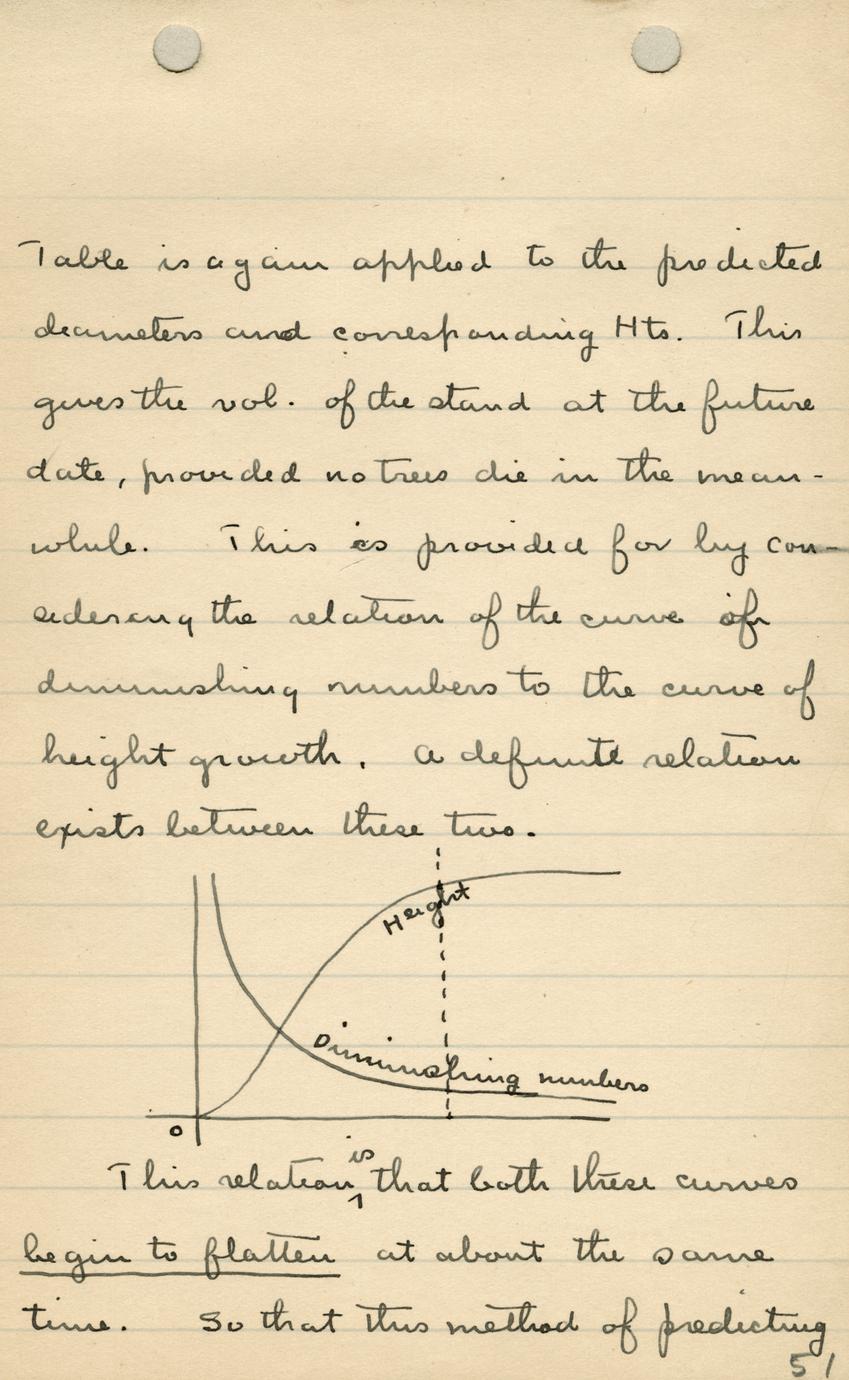 Table is again applied to the predicted
diameters and corresponding Hts. This
gives the vol. of the stand at the future
date, provided no trees die in the mean-
while. This is provided for by con-
sidering the relation of the curve of
diminishing numbers to the curve of
height growth. A definite relation
exists between these two.
Height
Diminishing numbers
0
This relation is that both these curves
begin to flatten at about the same
time. So that this method of predicting
51